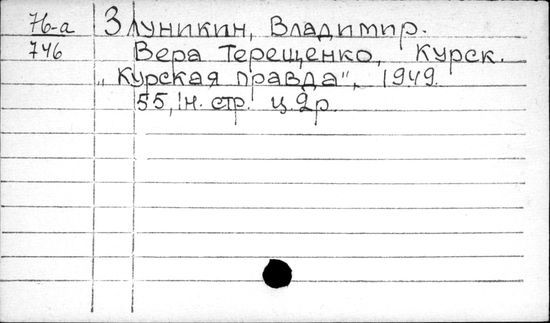 76-а Злуникин, Владимир.
746 Вера Терещенко, Курск.
„Курская правда", 1949.
55, 1н. стр. ц. 2р.